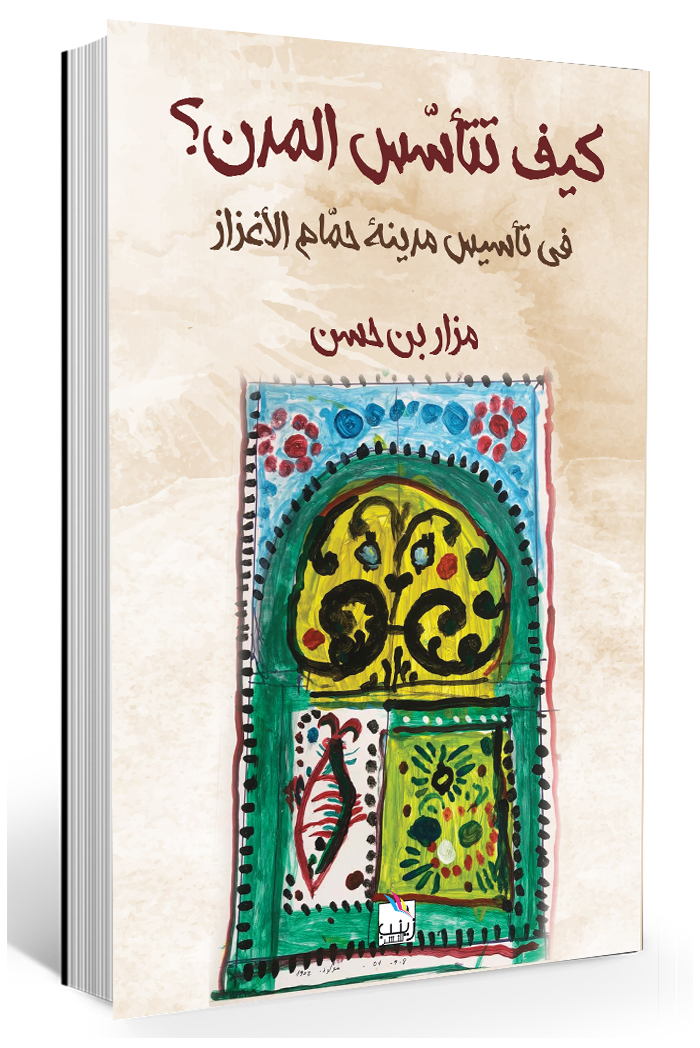 كيف تتأسّس المدن؟
في تأسيس مدينة حمّام الأغزاز
مزار بن حسن
زينب
للنشر